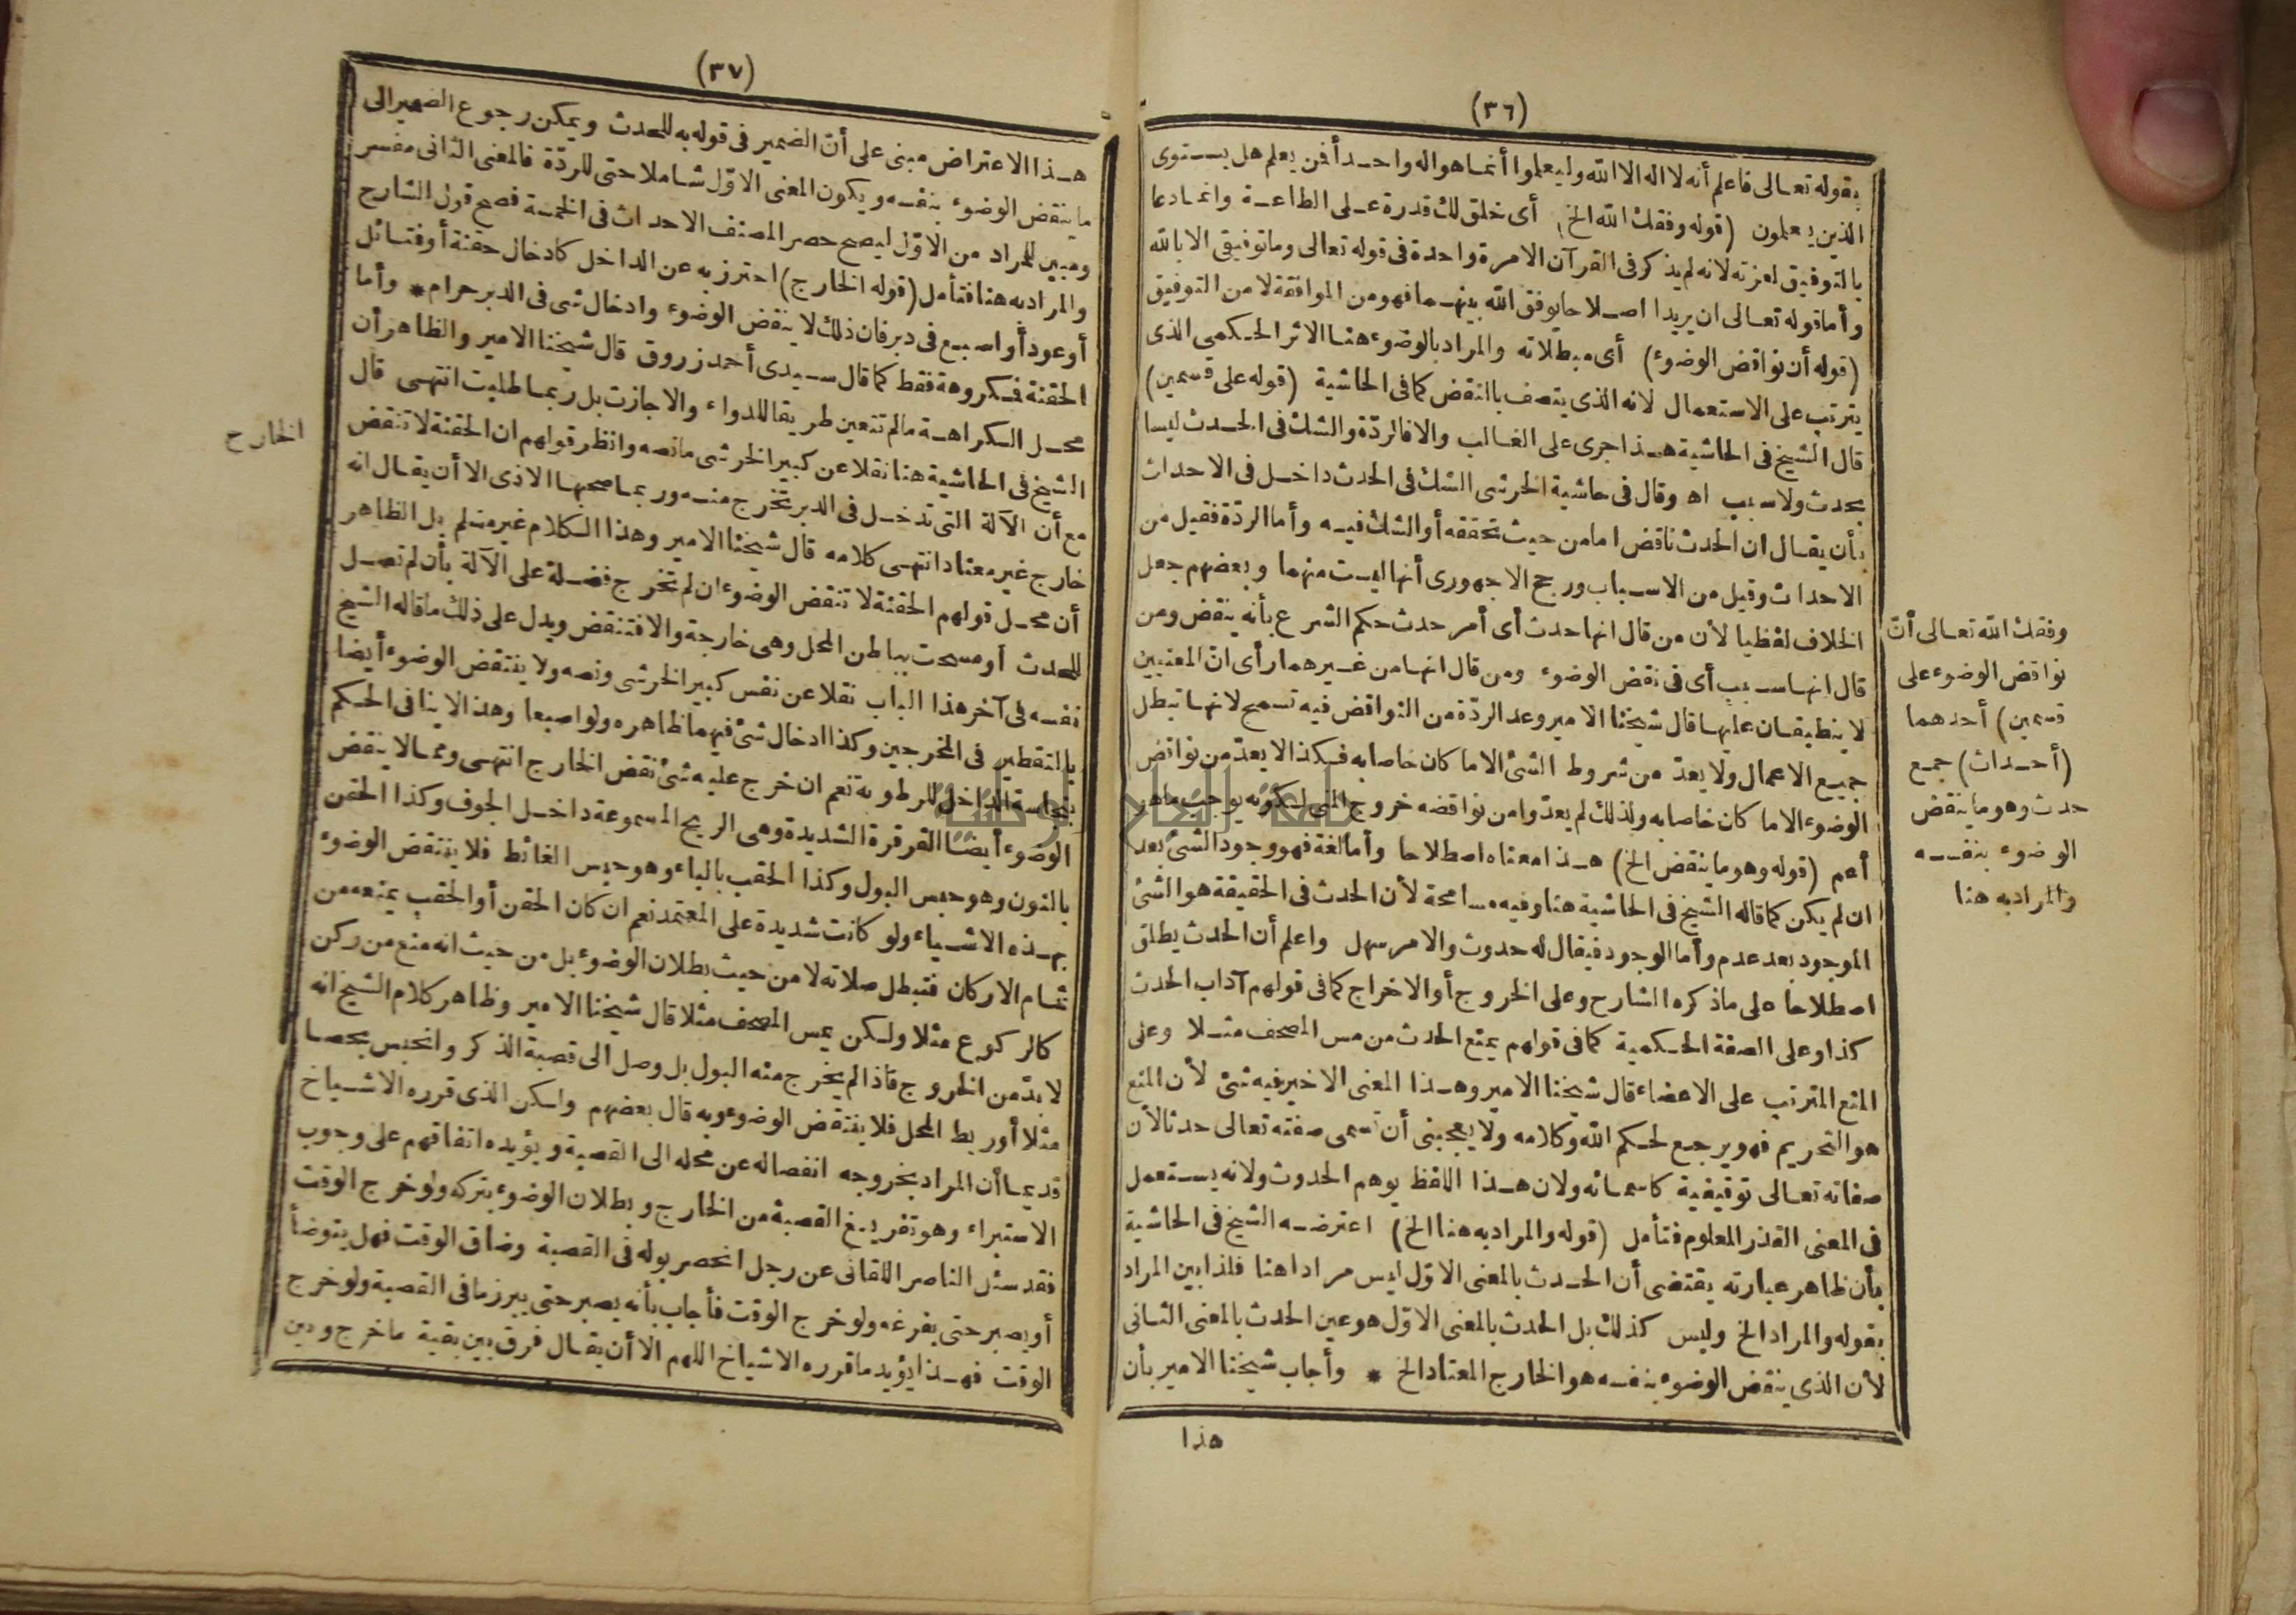 (٣٦)
بقوله تعالى فاعلم أنه لا اله الا الله وليعلموا أنما هو اله واحد أفن يعلم هل يستوى
الذين يعلمون (قوله وفقك الله الخ) أى خلق لك قدرة على الطاعة وانما دعا
بالتوفيق لعزته لانه لم يذكر فى القرآن الا مرة واحدة فى قوله تعالى وما توفيقى الا بالله
وأما قوله تعالى ان يريدا اصلاحا يوفق الله بينهما فهو من الموافقة لا من التوفيق
(قوله أن نواقض الوضوء) أى مبطلاته والمراد بالوضوء هنا الاثر الحكمى الذى
يترتب على الاستعمال لانه الذى يتصف بالنقض كما فى الحاشية (قوله على قسمين)
قال الشيخ فى الحاشية هذا جرى على الغالب والا فالردّة والشك فى الحدث ليسا
بحدث ولا سبب اه وقال فى حاشية الخرشى الشك فى الحدث داخل فى الاحداث
بأن يقال ان الحدث ناقض اما من حيث تحققه أو الشك فيه وأما الردّة فقيل من
الاحداث وقيل من الاسباب ورجح الاجهورى أنها ليست منهما وبعضهم جعل
الخلاف لفظيا لأن من قال انها حدث أى أمر حدث حكم الشرع بأنه ينقض ومن
قال انها سبب أى فى نقض الوضوء ومن قال انها من غيرهما رأى انّ المعنيين
لا ينطبقان عليها قال شيخنا الامير وعد الردّة من النواقض فيه تسمح لانها تبطل
جميع الاعمال ولا يعدّ من شروط الشئ الا ما كان خاصا به فكذا لا يعدّ من نواقض
الوضوء الا ما كان خاصا به ولذلك لم يعدّوا من نواقضه خروج المنى لكونه يوجب ما هو
أعم (قوله وهو ما ينقض الخ) هذا معناه اصطلاحا وأما لغة فهو وجود الشئ بعد
ان لم يكن كما قاله الشيخ فى الحاشية هنا وفيه مسامحة لأن الحدث فى الحقيقة هو الشئ
الموجود بعد عدم وأما الوجود فيقال له حدوث والامر سهل واعلم أن الحدث يطلق
اصطلاحا على ما ذكره الشارح وعلى الخروج أو الاخراج كما فى قولهم آداب الحدث
كذا وعلى الصفة الحكمية كما فى قولهم يمنع الحدث من مس المصحف مثلا وعلى
المنع المترتب على الاعضاء قال شيخنا الامير وهذا المعنى الاخير فيه شئ لأن المنع
هو التحريم فهو يرجع لحكم الله وكلامه ولا يعجبنى أن تسمى صفته تعالى حدثا لأن
صفاته تعالى توقيفية كاسمائه ولان هذا اللفظ يوهم الحدوث ولانه يستعمل
فى المعنى القذر المعلوم فتأمل (قوله والمراد به هنا الخ) اعترضه الشيخ فى الحاشية
بأن ظاهر عبارته يقتضى أن الحدث بالمعنى الاوّل ليس مرادا هنا فلذا بين المراد
بقوله والمراد الخ وليس كذلك بل الحدث بالمعنى الاوّل هو عين الحدث بالمعنى الثانى
لأن الذى ينقض الوضوء بنفسه هو الخارج المعتاد الخ * وأجاب شيخنا الامير بأن
هذا
وفقك الله تعالى أنّ
نواقض الوضوء على
قسمين) أحدهما
(أحداث) جمع
حدث وهو ما ينقض
الوضوء بنفسه
والمراد به هنا
(٣٧)
هذا الاعتراض مبنى على أنّ الضمير فى قوله به للحدث ويمكن رجوع الضمير الى
ما ينقض الوضوء بنفسه ويكون المعنى الاوّل شاملا حتى للردّة فالمعنى الثانى مفسر
ومبين للمراد من الاوّل ليصح حصر المصنف الاحداث فى الخمسة فصح قول الشارح
والمراد به هنا فتأمل (قوله الخارج) احترز به عن الداخل كادخال حقنة أو فتائل
أو عود أو اصبع فى دبر فان ذلك لا ينقض الوضوء وادخال شى فى الدبر حرام * وأما
الحقنة فكروهة فقط كما قال سيدى أحمد زروق قال شيخنا الامير والظاهر أن
محل الكراهة ما لم تتعين طريقا للدواء والا جازت بل ربما طلبت انتهى قال
الشيخ فى الحاشية هنا نقلا عن كبير الخرشى ما نصه وانظر قولهم ان الحقنة لا تنقض
مع أن الآلة التى تدخل فى الدبر تخرج منه وربما صحبها الاذى الا أن يقال انه
خارج غير معتاد انتهى كلامه قال شيخنا الامير وهذا الكلام غير مسلم بل الظاهر
أن محل قولهم الحقنة لا تنقض الوضوء ان لم تخرج فضلة على الآلة بأن لم تصل
للحدث أو مسحت بباطن المحل وهى خارجة والا فتنقض ويدل على ذلك ما قاله الشيخ
نفسه فى آخر هذا الباب نقلا عن نفس كبير الخرشى ونصه ولا ينتقض الوضوء أيضا
بالتقطير فى المخرجين وكذا ادخال شئ فيهما ظاهره ولو اصبعا وهذا لا ينافى الحكم
بنجاسة الداخل للرطوبة نعم ان خرج عليه شئ نقض الخارج انتهى ومما لا ينقض
الوضوء أيضا القرقرة الشديدة وهى الريح المسموعة داخل الجوف وكذا الحقن
بالنون وهو حبس البول وكذا الحقب بالباء وهو حبس الغائط فلا ينتقض الوضوء
بهذه الاشياء ولو كانت شديدة على المعتمد نعم ان كان الحقن أو الحقب يمنعه من
تمام الاركان فتبطل صلاته لا من حيث بطلان الوضوء بل من حيث انه منع من ركن
كالركوع مثلا ولكن يمس المصحف مثلا قال شيخنا الامير وظاهر كلام الشيخ انه
لا بدّ من الخروج فاذا لم يخرج منه البول بل وصل الى قصبة الذكر وانحبس بحصا
مثلا أو ربط المحل فلا ينتقض الوضوء وبه قال بعضهم ولكن الذى قرره الاشياخ
قديما أن المراد بخروجه انفصاله عن محله الى القصبة ويؤيده اتفاقهم على وجوب
الاستبراء وهو تفريغ القصبة من الخارج وبطلان الوضوء بتركه ولو خرج الوقت
فقد سئل الناصر اللقانى عن رجل انحصر بوله فى القصبة وضاق الوقت فهل يتوضأ
أو يصبر حتى يفرغه ولو خرج الوقت فأجاب بأنه يصبر حتى يبرز ما فى القصبة ولو خرج
الوقت فهذا يؤيد ما قرره الاشياخ اللهم الا أن يقال فرق بين بقية ما خرج وبين
الخارج